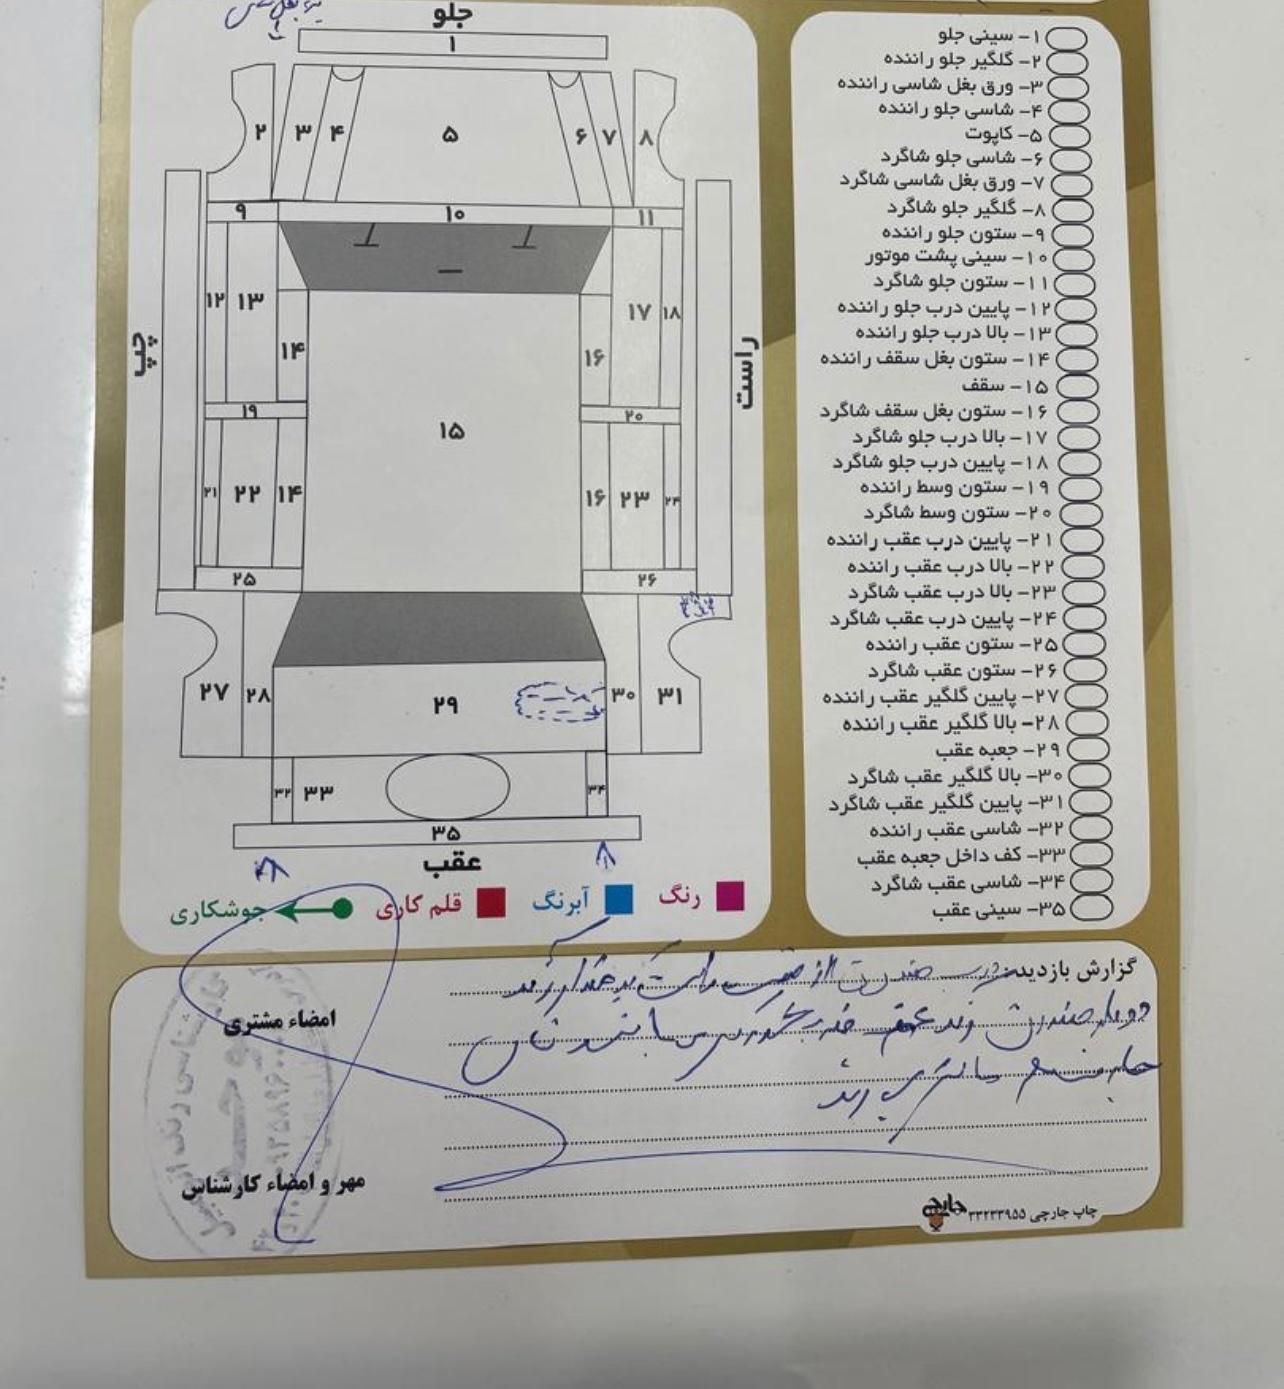 جلو
۱
۲ ۳ ۴ ۵ ۶ ۷ ۸
۹ ۱۰ ۱۱
۱۲ ۱۳ ۱۷ ۱۸
۱۴ ۱۶
چپ
راست
۱۹ ۱۵ ۲۰
۲۱ ۲۲ ۱۴ ۱۶ ۲۳ ۲۴
۲۵ ۲۶
۲۷ ۲۸ ۲۹ ۳۰ ۳۱
۳۲ ۳۳ ۳۴
۳۵
عقب
رنگ
آبرنگ
قلم کاری
جوشکاری
۱- سینی جلو
۲- گلگیر جلو راننده
۳- ورق بغل شاسی راننده
۴- شاسی جلو راننده
۵- کاپوت
۶- شاسی جلو شاگرد
۷- ورق بغل شاسی شاگرد
۸- گلگیر جلو شاگرد
۹- ستون جلو راننده
۱۰- سینی پشت موتور
۱۱- ستون جلو شاگرد
۱۲- پایین درب جلو راننده
۱۳- بالا درب جلو راننده
۱۴- ستون بغل سقف راننده
۱۵- سقف
۱۶- ستون بغل سقف شاگرد
۱۷- بالا درب جلو شاگرد
۱۸- پایین درب جلو شاگرد
۱۹- ستون وسط راننده
۲۰- ستون وسط شاگرد
۲۱- پایین درب عقب راننده
۲۲- بالا درب عقب راننده
۲۳- بالا درب عقب شاگرد
۲۴- پایین درب عقب شاگرد
۲۵- ستون عقب راننده
۲۶- ستون عقب شاگرد
۲۷- پایین گلگیر عقب راننده
۲۸- بالا گلگیر عقب راننده
۲۹- جعبه عقب
۳۰- بالا گلگیر عقب شاگرد
۳۱- پایین گلگیر عقب شاگرد
۳۲- شاسی عقب راننده
۳۳- کف داخل جعبه عقب
۳۴- شاسی عقب شاگرد
۳۵- سینی عقب
گزارش بازدید:
امضاء مشتری
مهر و امضاء کارشناس
چاپ جارچی ۳۳۲۳۳۹۵۵
جارچی